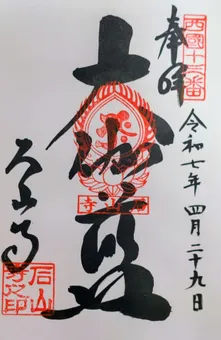 西國十三番
奉拝
令和七年四月二十九日
大伽藍
石山寺
石山寺之印